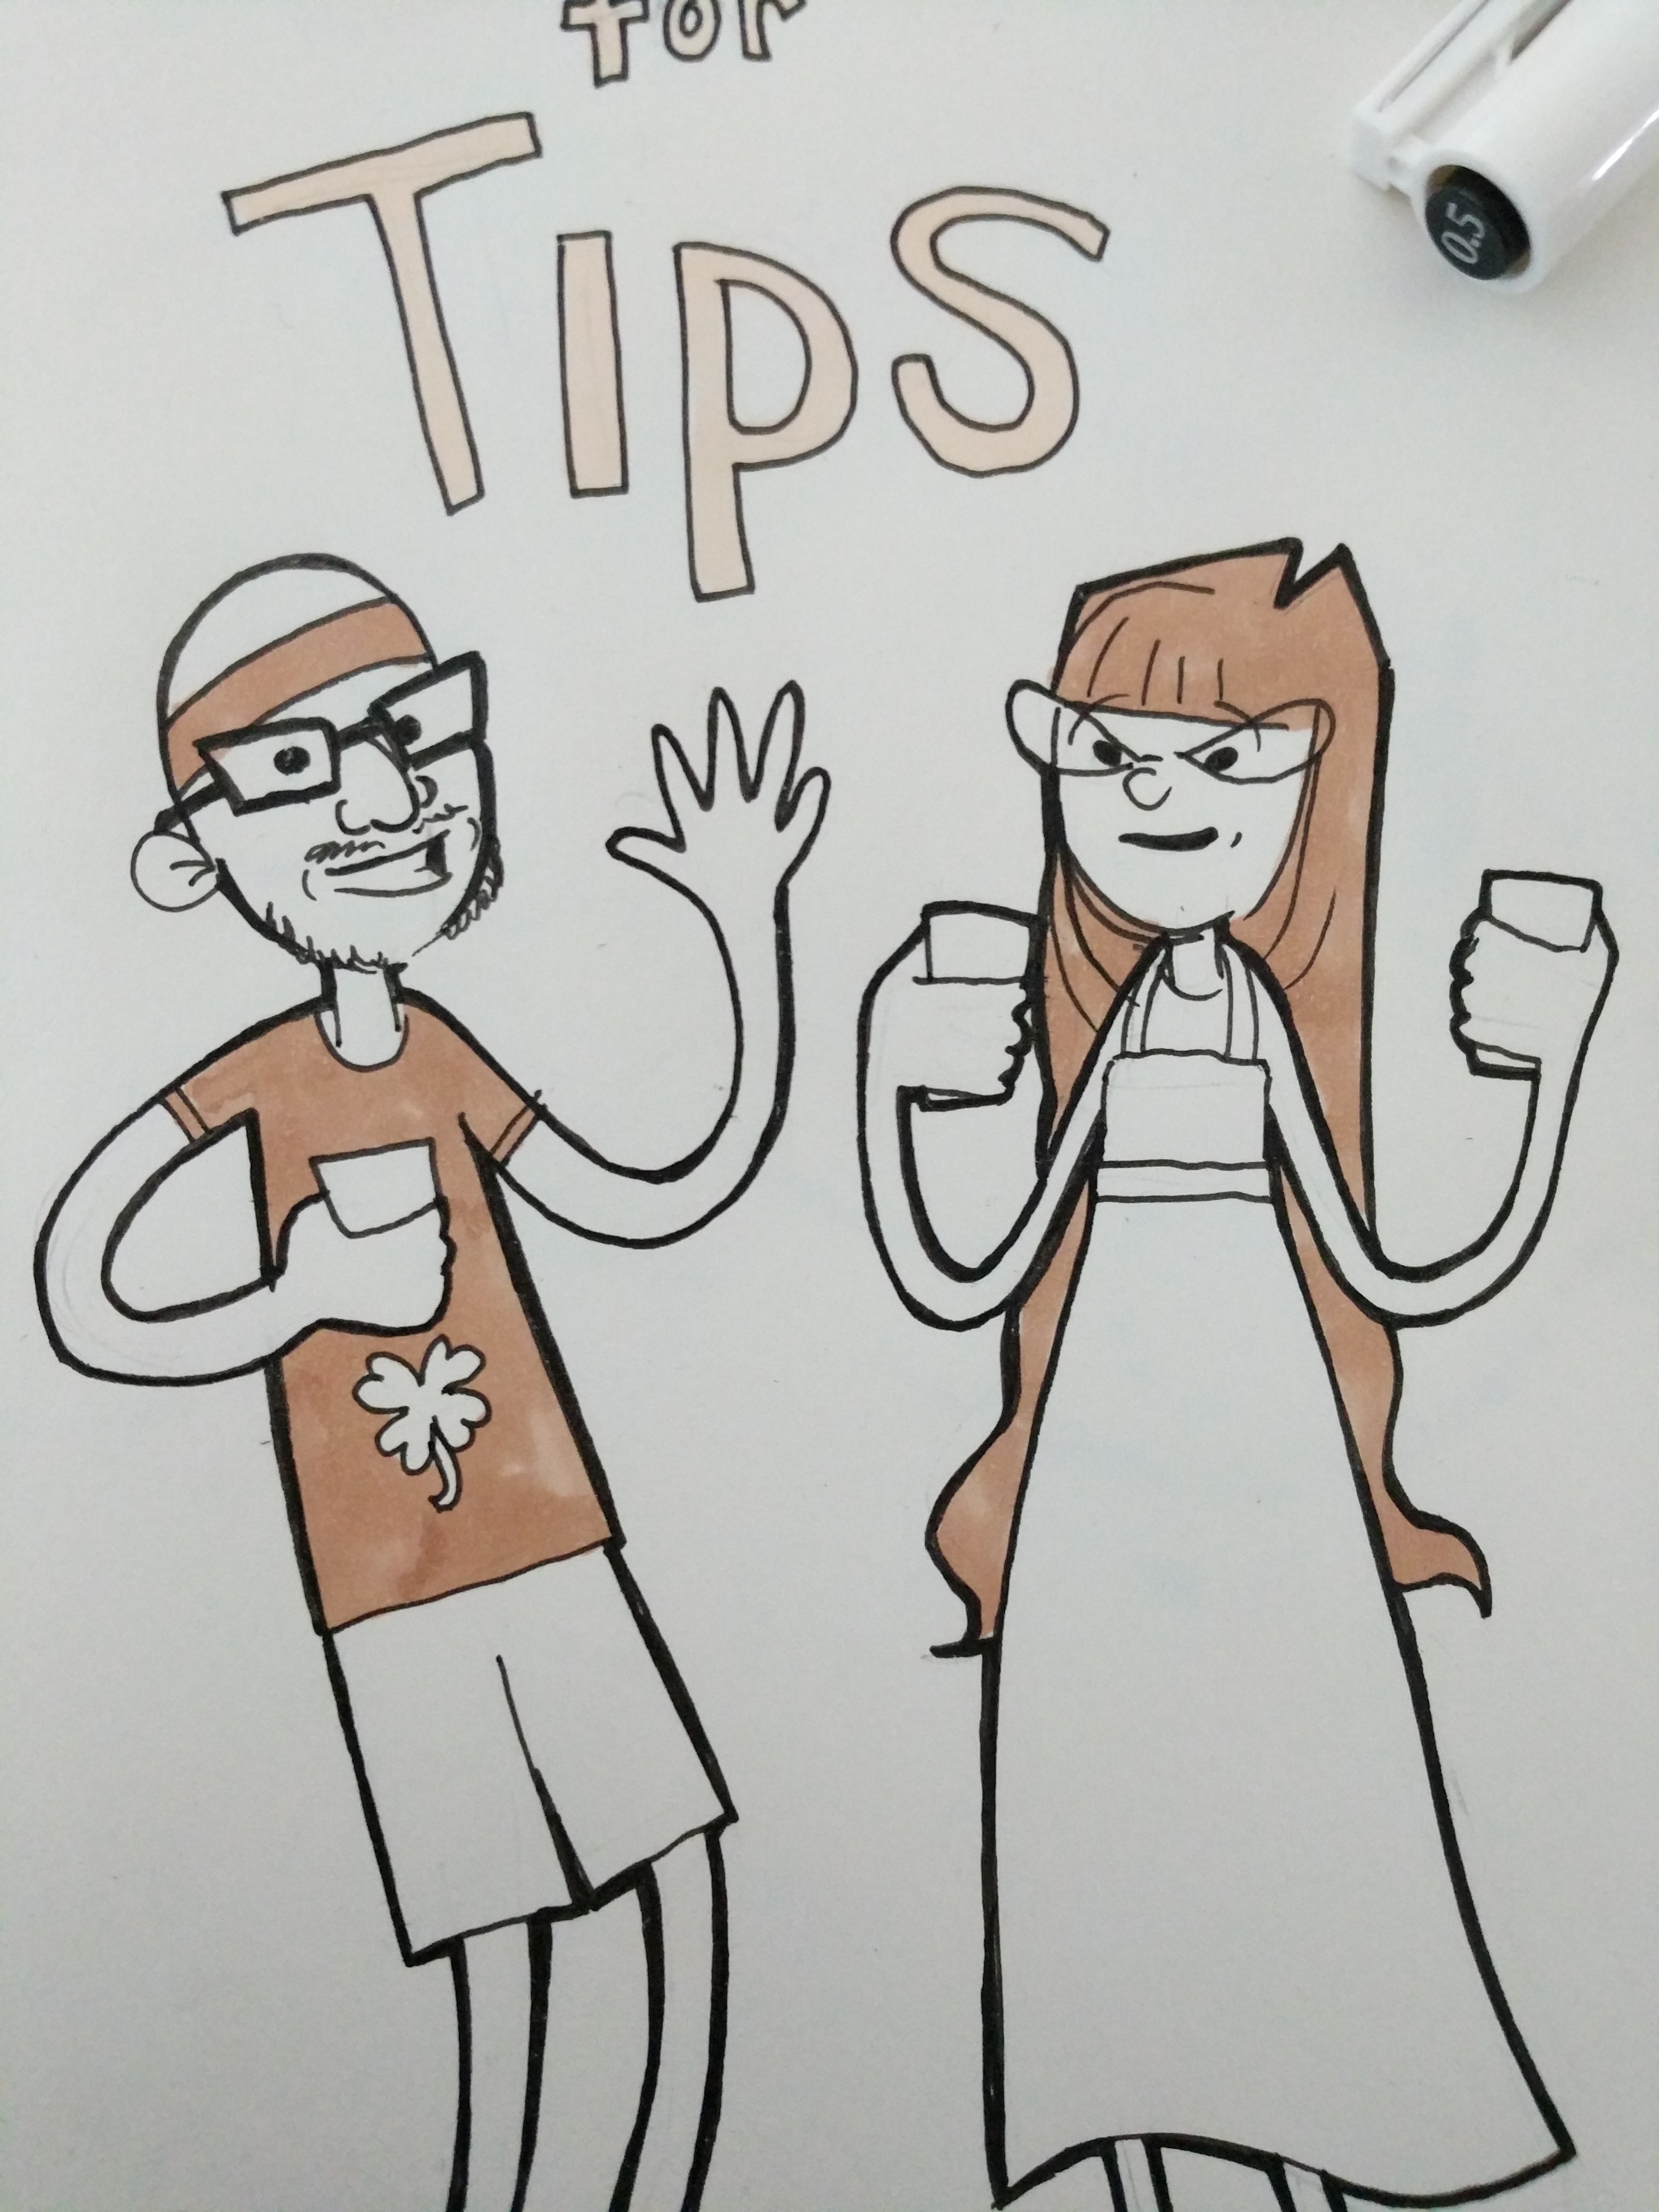 for
Tips
0.5